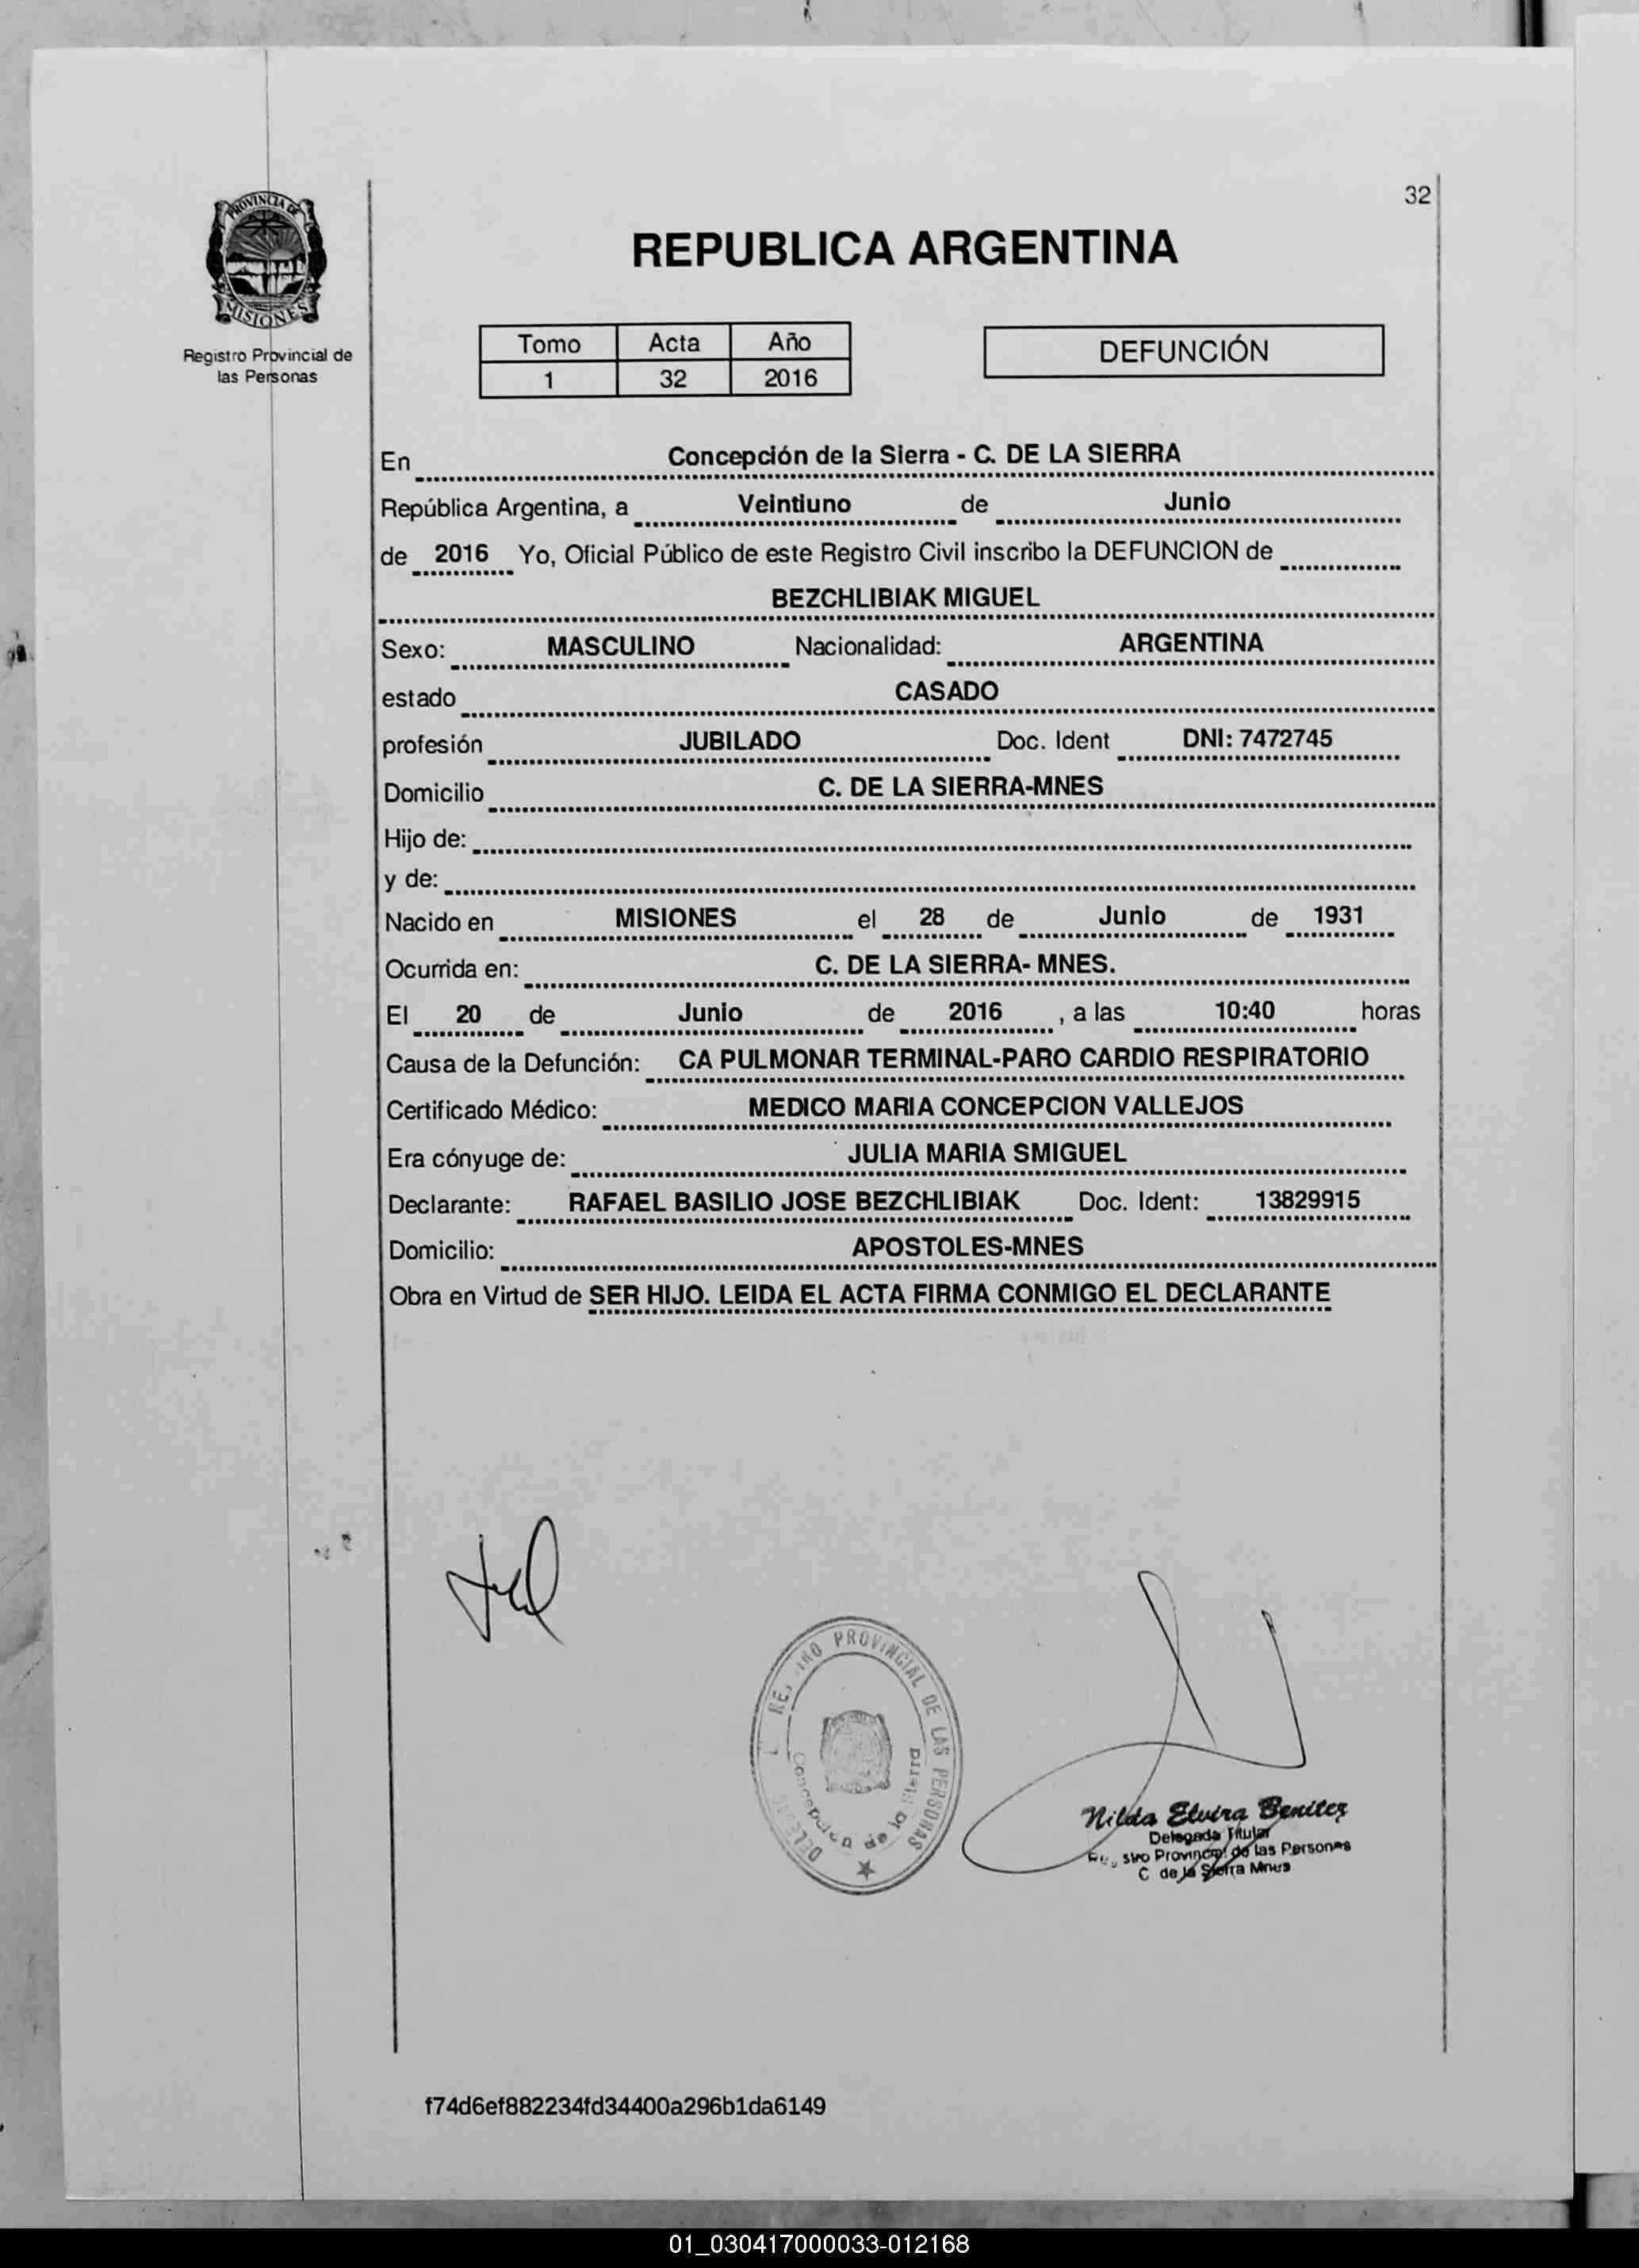 32
PROVINCIA DE
MISIONES
Registro Provincial de
las Personas
REPUBLICA ARGENTINA
Tomo Acta Año
1 32 2016
DEFUNCIÓN
En Concepción de la Sierra - C. DE LA SIERRA
República Argentina, a Veintiuno de Junio
de 2016 Yo, Oficial Público de este Registro Civil inscribo la DEFUNCION de
BEZCHLIBIAK MIGUEL
Sexo: MASCULINO Nacionalidad: ARGENTINA
estado CASADO
profesión JUBILADO Doc. Ident DNI: 7472745
Domicilio C. DE LA SIERRA-MNES
Hijo de:
y de:
Nacido en MISIONES el 28 de Junio de 1931
Ocurrida en: C. DE LA SIERRA- MNES.
El 20 de Junio de 2016 , a las 10:40 horas
Causa de la Defunción: CA PULMONAR TERMINAL-PARO CARDIO RESPIRATORIO
Certificado Médico: MEDICO MARIA CONCEPCION VALLEJOS
Era cónyuge de: JULIA MARIA SMIGUEL
Declarante: RAFAEL BASILIO JOSE BEZCHLIBIAK Doc. Ident: 13829915
Domicilio: APOSTOLES-MNES
Obra en Virtud de SER HIJO. LEIDA EL ACTA FIRMA CONMIGO EL DECLARANTE
PROVINCIAL DE LAS PERSONAS
Concepcion de la Sierra
Nilda Elvira Benitez
Delegada Titular
Provincial de las Personas
C de la Sierra Mnes
f74d6ef882234fd34400a296b1da6149
01_030417000033-012168